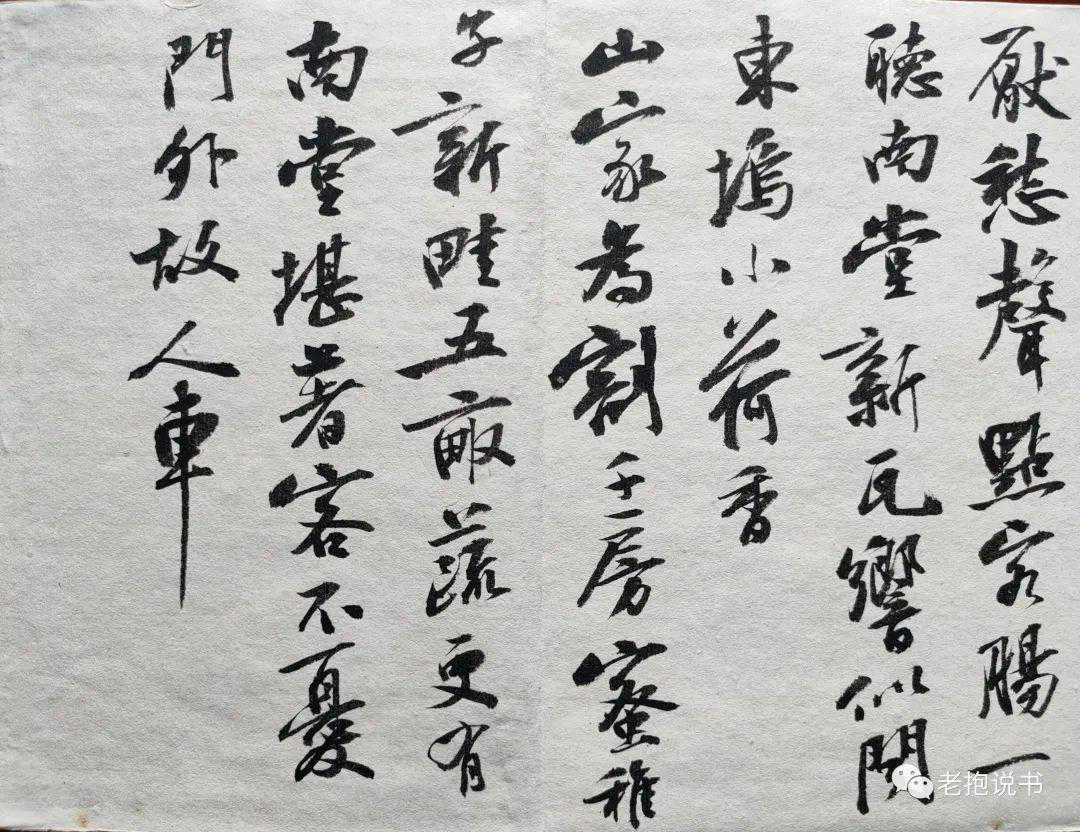 厭愁聲點客腸一
聽南堂新瓦響似聞
東塢小荷香
山家為割千房蜜稚
子新畦五畝蔬更有
南堂堪著客不憂
門外故人車
老抱说书